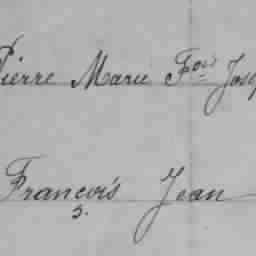 Pierre Marie Fois Josep
François Jean